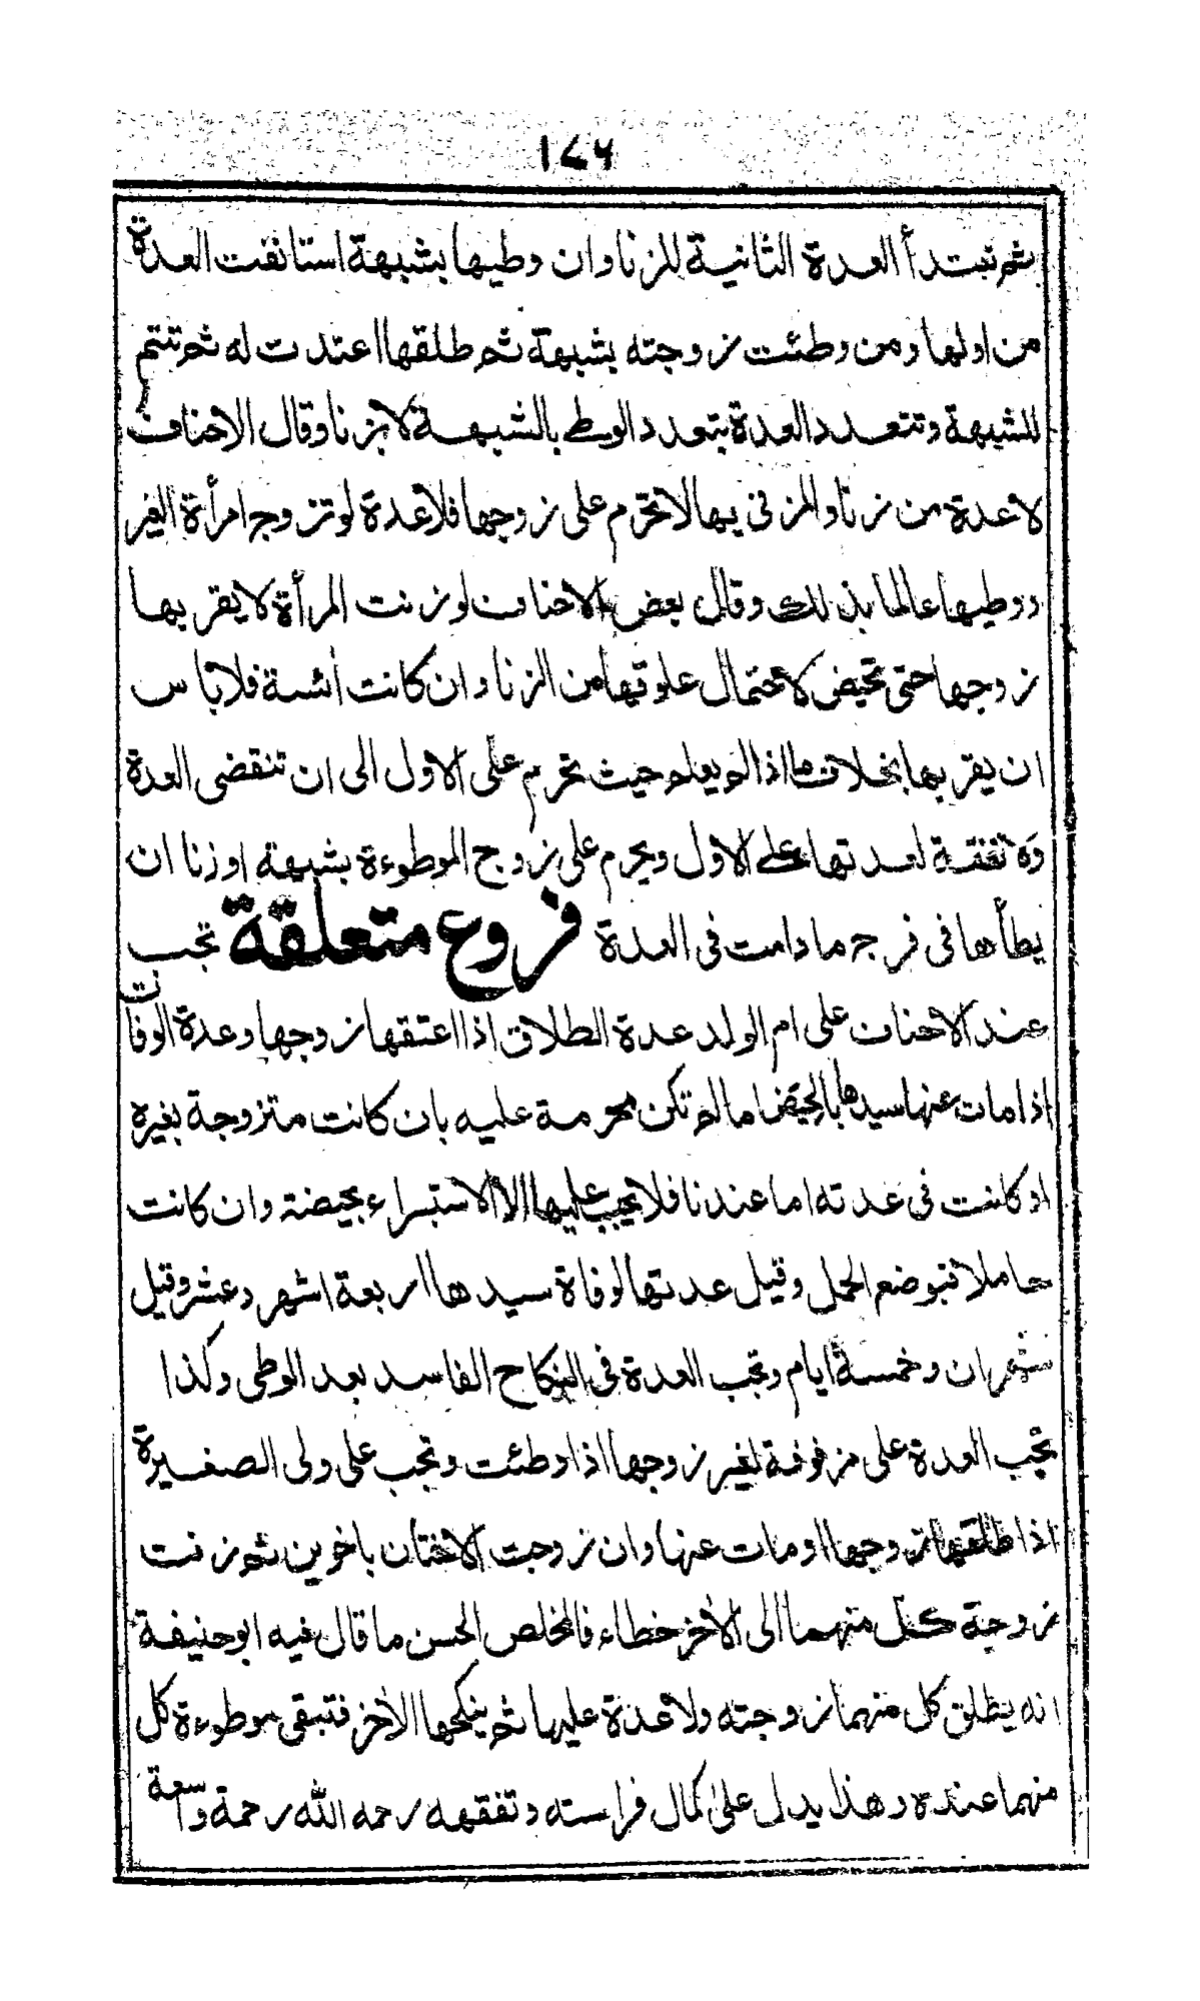 ١٧٦
ثم تبتدأ العدة الثانية للزنا وان وطيها بشبهة استانفت العدة
من اولها ومن وطئت زوجته بشبهة ثم طلقها اعتدت له ثم تتم
للشبهة وتتعدد العدة بتعدد الوطي بالشبهة لا بزنا وقال الاحناف
لاعدة من زنا والمزني بها لا تحرم على زوجها فلا عدة لو تزوج امرأة الغير
ووطيها عالما بذلك وقال بعض الاحناف لو زنت المرأة لا يقربها
زوجها حتى تحيض لاحتمال علوقها من الزنا وان كانت أئسة فلا باس
ان يقربها بخلاف ما اذا لم يعلم حيث تحرم على الاول الى ان تنقضى العدة
ولا نفقة لعدتها على الاول ويحرم على زوج الموطوءة بشبهة او زنا ان
يطأها فى فرجه ما دامت فى العدة فروع متعلقة تجب
عند الاحناف على ام الولد عدة الطلاق اذا اعتقها زوجها وعدة الوفات
اذا مات عنها سيدها بالحيض ما لم تكن محرمة عليه بان كانت متزوجة بغيره
او كانت فى عدته اما عندنا فلا يجب عليها الا الاستبراء بحيضة وان كانت
حاملا فبوضع الحمل وقيل عدتها لوفاة سيدها اربعة اشهر وعشر وقيل
شهران وخمسة ايام وتجب العدة فى النكاح الفاسد بعد الوطى وكذا
تجب العدة على مزفوفة لغير زوجها اذا وطئت وتجب على ولى الصغيرة
اذا طلقها زوجها او مات عنها وان زوجت الاختان باخوين ثم زفت
زوجة كل منهما الى الأخر خطاء فالمخلص الحسن ما قال فيه ابو حنيفة
انه يطلق كل منهما زوجته ولا عدة عليها ثم ينكحها الأخر فتبقى موطوءة كل
منهما عنده وهذا يدل على كمال فراسته وتفقهه رحمه الله رحمة واسعة